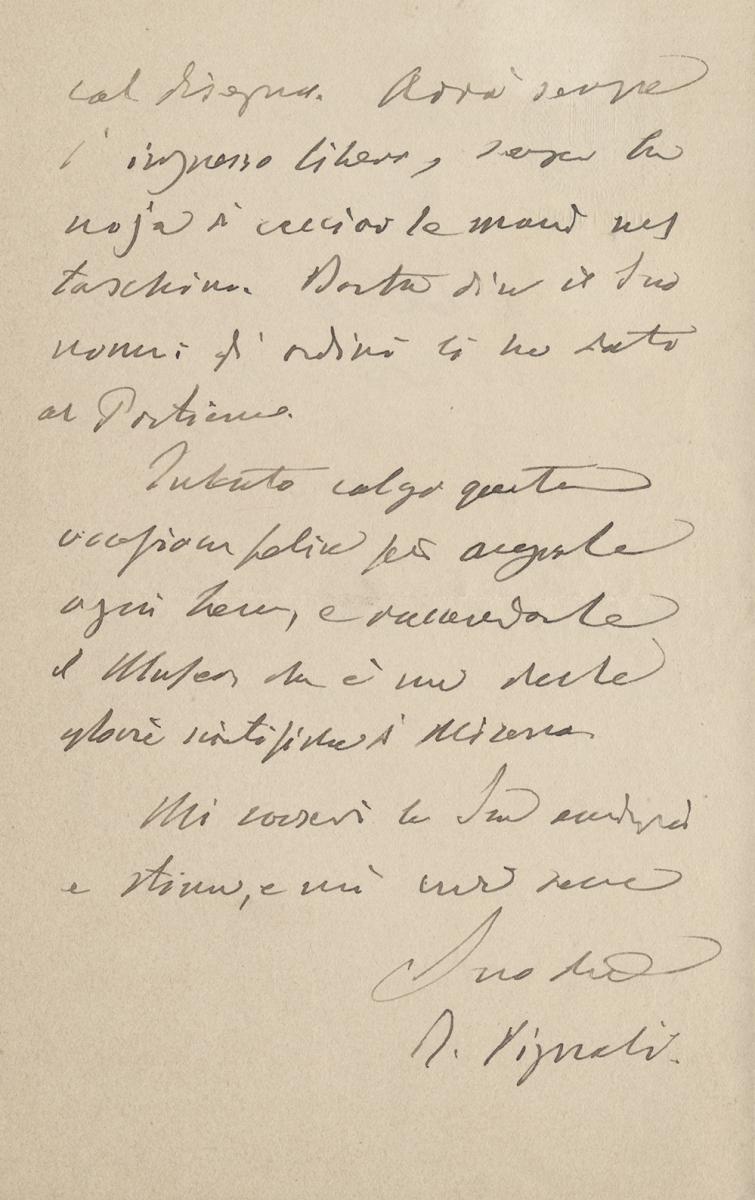 col disegno. Avrà sempre
l'ingresso libero, senza la
noja di cacciar le mani nel
taschino. Basta dire il Suo
nome: gli ordini li ho dato
al Portiere.
Intanto colgo questa
occasione felice per augurarle
ogni bene, e raccomandarle
il Museo che è una delle
glorie scientifiche di Milano.
Mi conservi la Sua amicizia
e stima, e mi creda sempre
Suo dev
T. Vignoli.